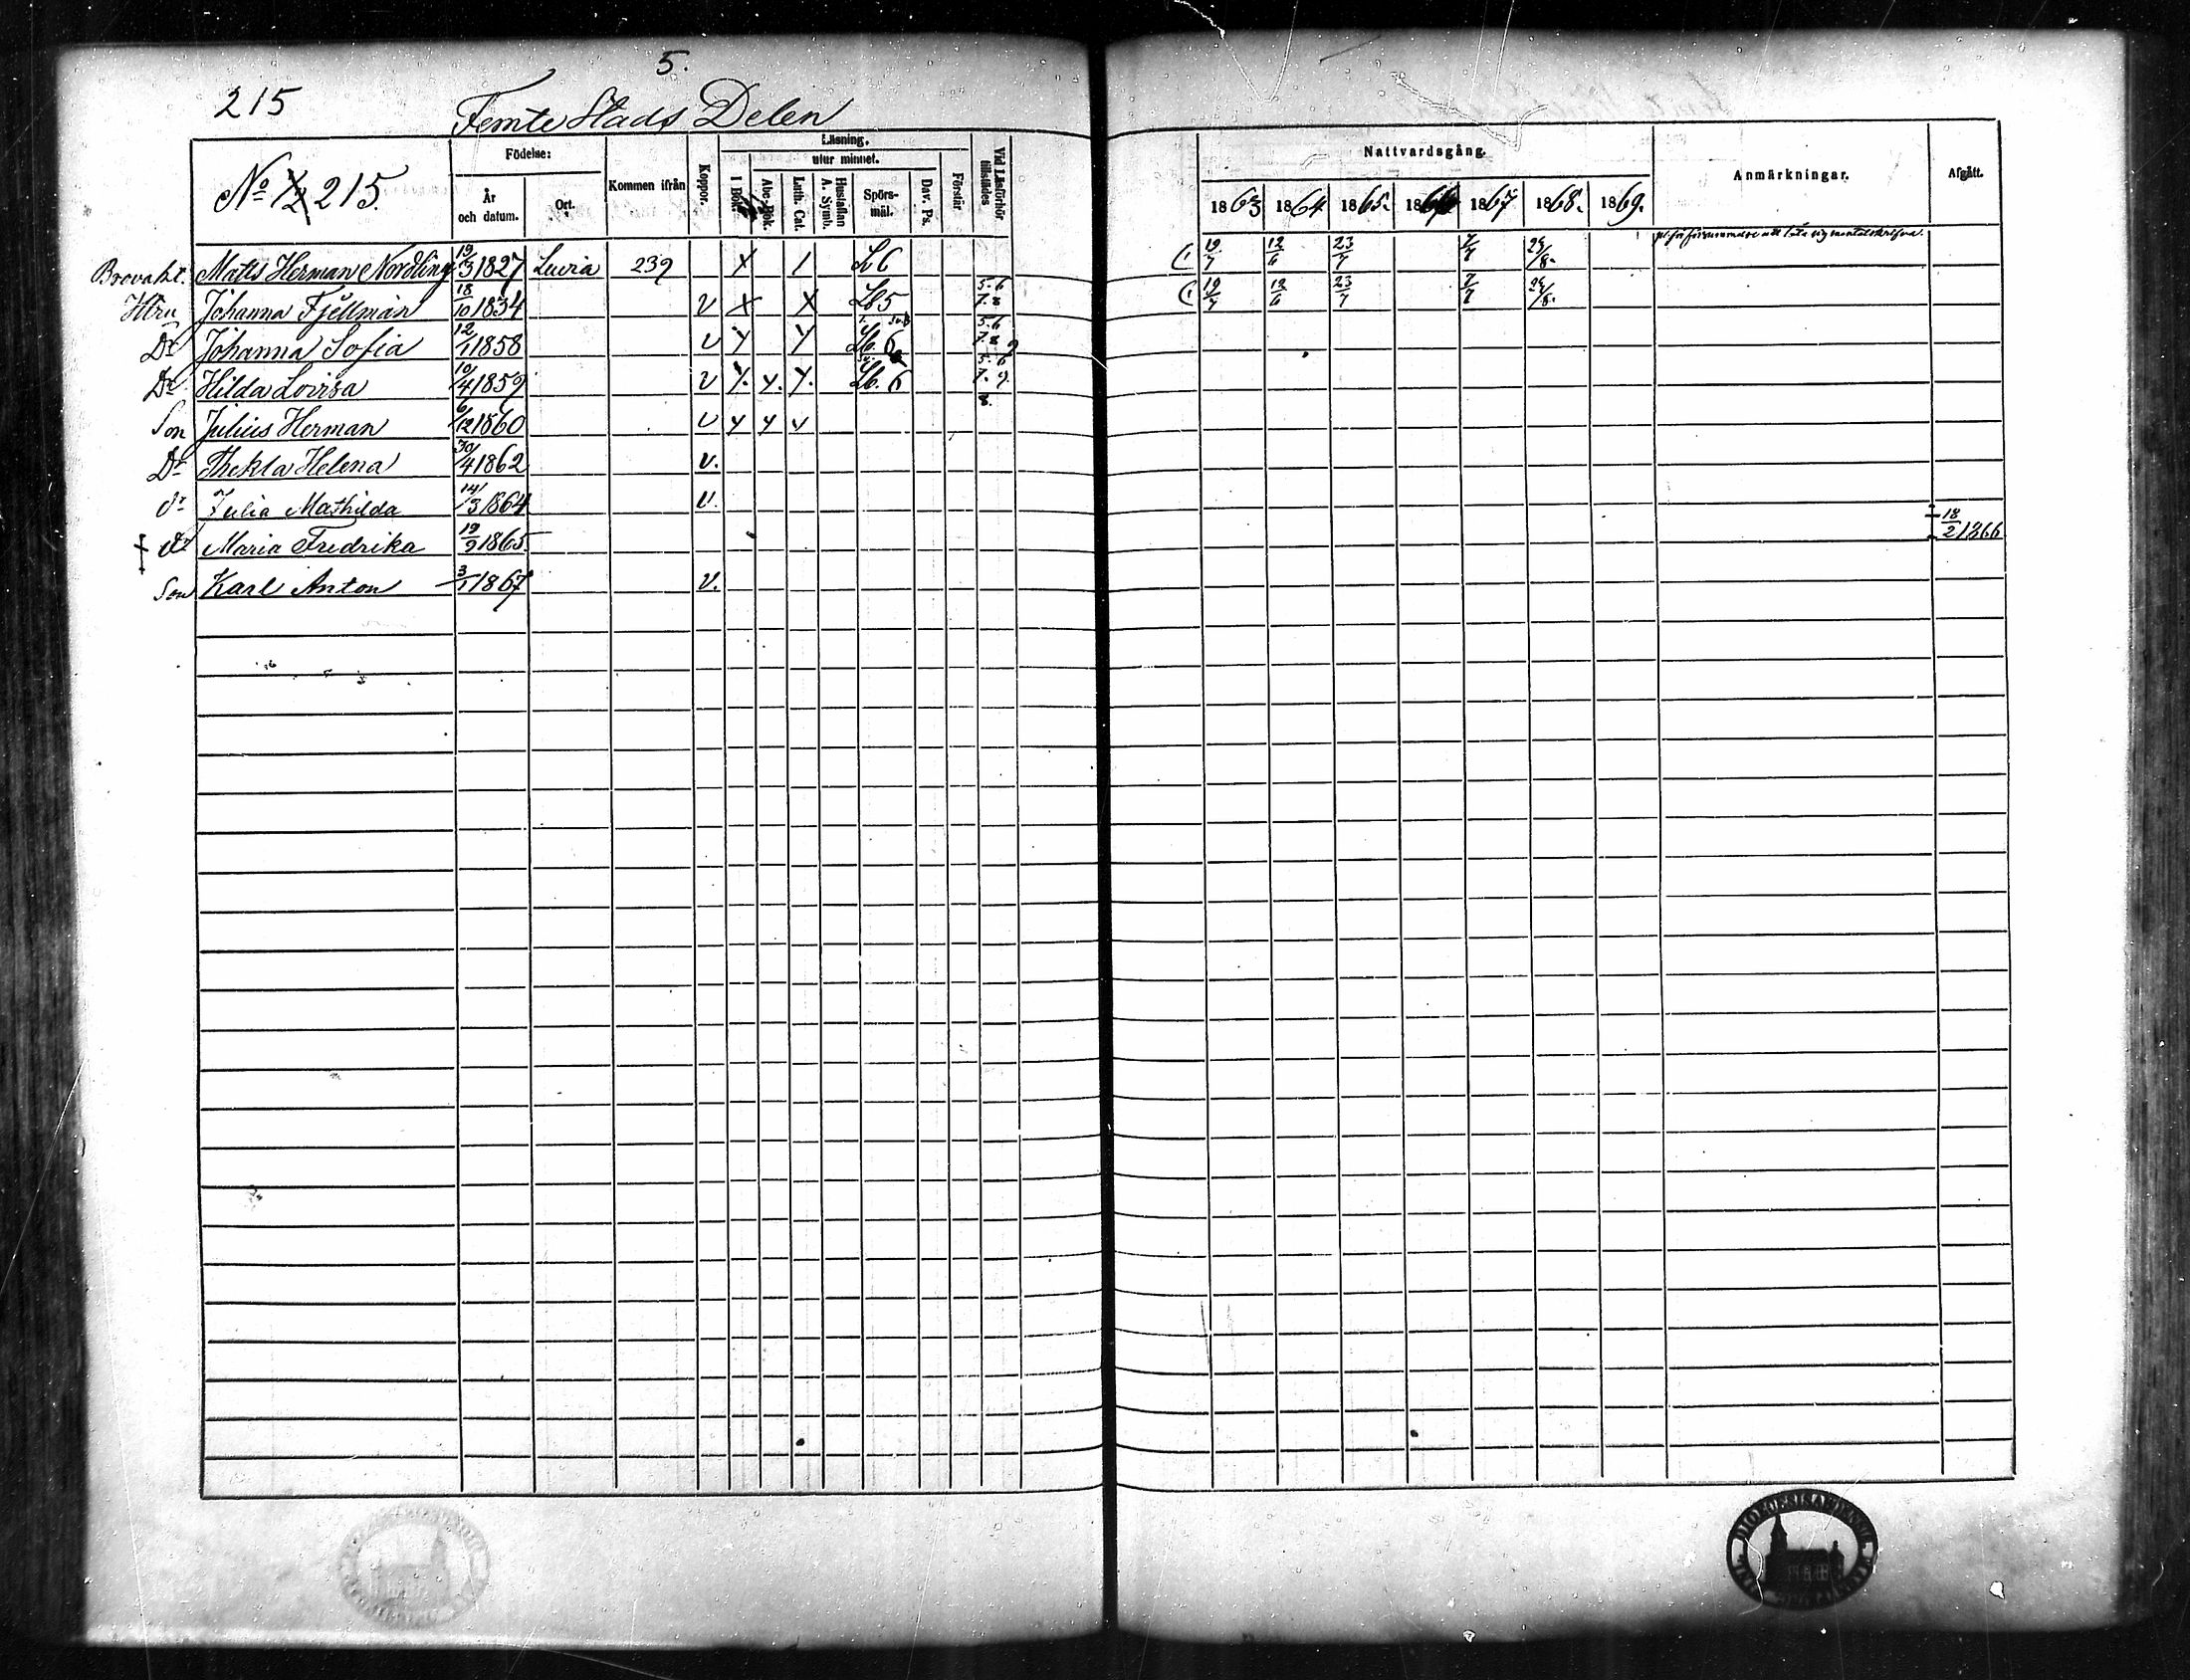 5.
215
Femte Stads Delen
No 215.
Födelse:
År och datum.
Ort.
Kommen ifrån
Koppor.
Läsning.
I Bok.
utur minnet.
Abc-Bok.
Luth. Cat.
Hustaflan A. Symb.
Spörs-mål.
Dav. Ps.
Förstår
Vid Läsförhör tillstädes
Nattvardsgång.
1863 1864 1865. 18 1867 1868. 1869.
Anmärkningar.
Afgått.
Brovakt. Matts Herman Nordling 19/3 1827 Luvia 239 X 1 Lb 6 19/7 12/6 23/7 7/7 24/8.
Hru Johanna Fjellman 18/10 1834 v X X Lb 5 5. 6 7. 8 19/7 12/6 23/7 7/7 24/8.
Dr Johanna Sofia 12/1 1858 v Y Y Lb. 6 5. 6 7. 8 9
Dr Hilda Lovisa 10/4 1859 v Y. Y. Y. Lb. 6 5. 6 7. 9. 8.
Son Julius Herman 6/12 1860 v Y Y Y
Dr Thekla Helena 30/4 1862 v.
dr Julia Mathilda 14/3 1864 v.
† dr Maria Fredrika 19/9 1865 † 18/2 1866
Son Karl Anton 3/1 1867 v.